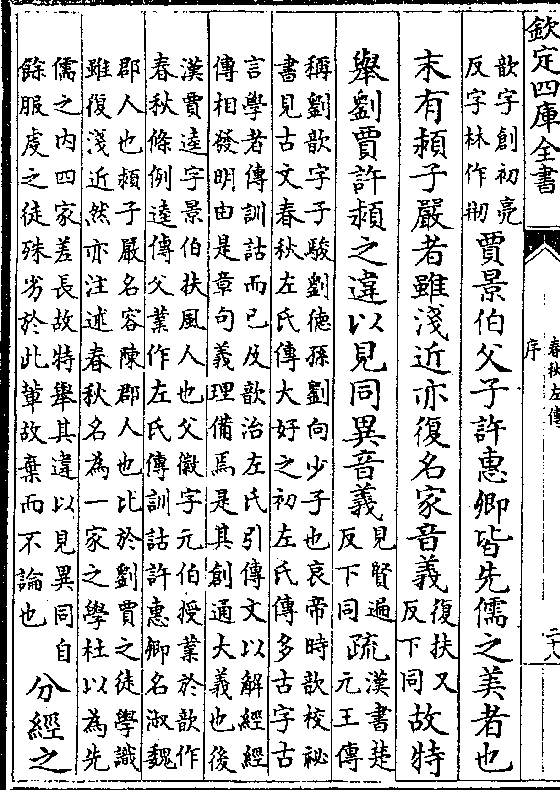 欽定四庫全書
春秋左傳
序
二十八
歆字創初亮
反字林作刱
賈景伯父子許惠卿皆先儒之美者也
末有潁子嚴者雖淺近亦復名家音義
復扶又
反下同
故特
舉劉賈許潁之違以見同異音義
見賢遍
反下同
疏
漢書楚
元王傳
稱劉歆字子駿劉德孫劉向少子也哀帝時歆校祕
書見古文春秋左氏傳大好之初左氏傳多古字古
言學者傳訓詁而已及歆治左氏引傳文以解經經
傳相發明由是章句義理備焉是其創通大義也後
漢賈逵字景伯扶風人也父徽字元伯授業於歆作
春秋條例逵傳父業作左氏傳訓詁許惠卿名淑魏
郡人也潁子嚴名容陳郡人也比於劉賈之徒學識
雖復淺近然亦注述春秋名為一家之學杜以為先
儒之內四家差長故特舉其違以見異同自
餘服虔之徒殊劣於此輩故棄而不論也
分經之